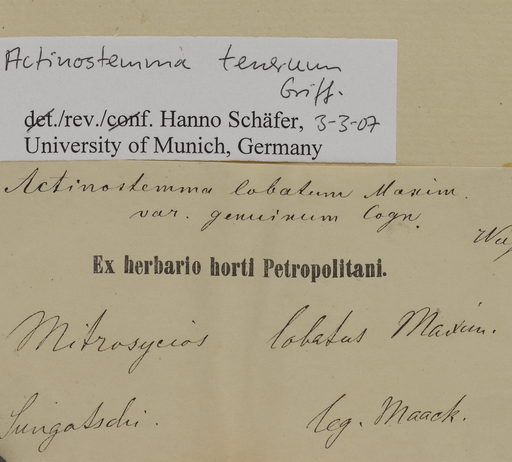 Actinostemma tenerum
Griff.
det./rev./conf. Hanno Schäfer, 3-3-07
University of Munich, Germany
Actinostemma lobatum Maxim.
var. genuinum Cogn.
Ex herbario horti Petropolitani.
Mitrosycios lobatus Maxim.
Sungatschi. leg. Maack.